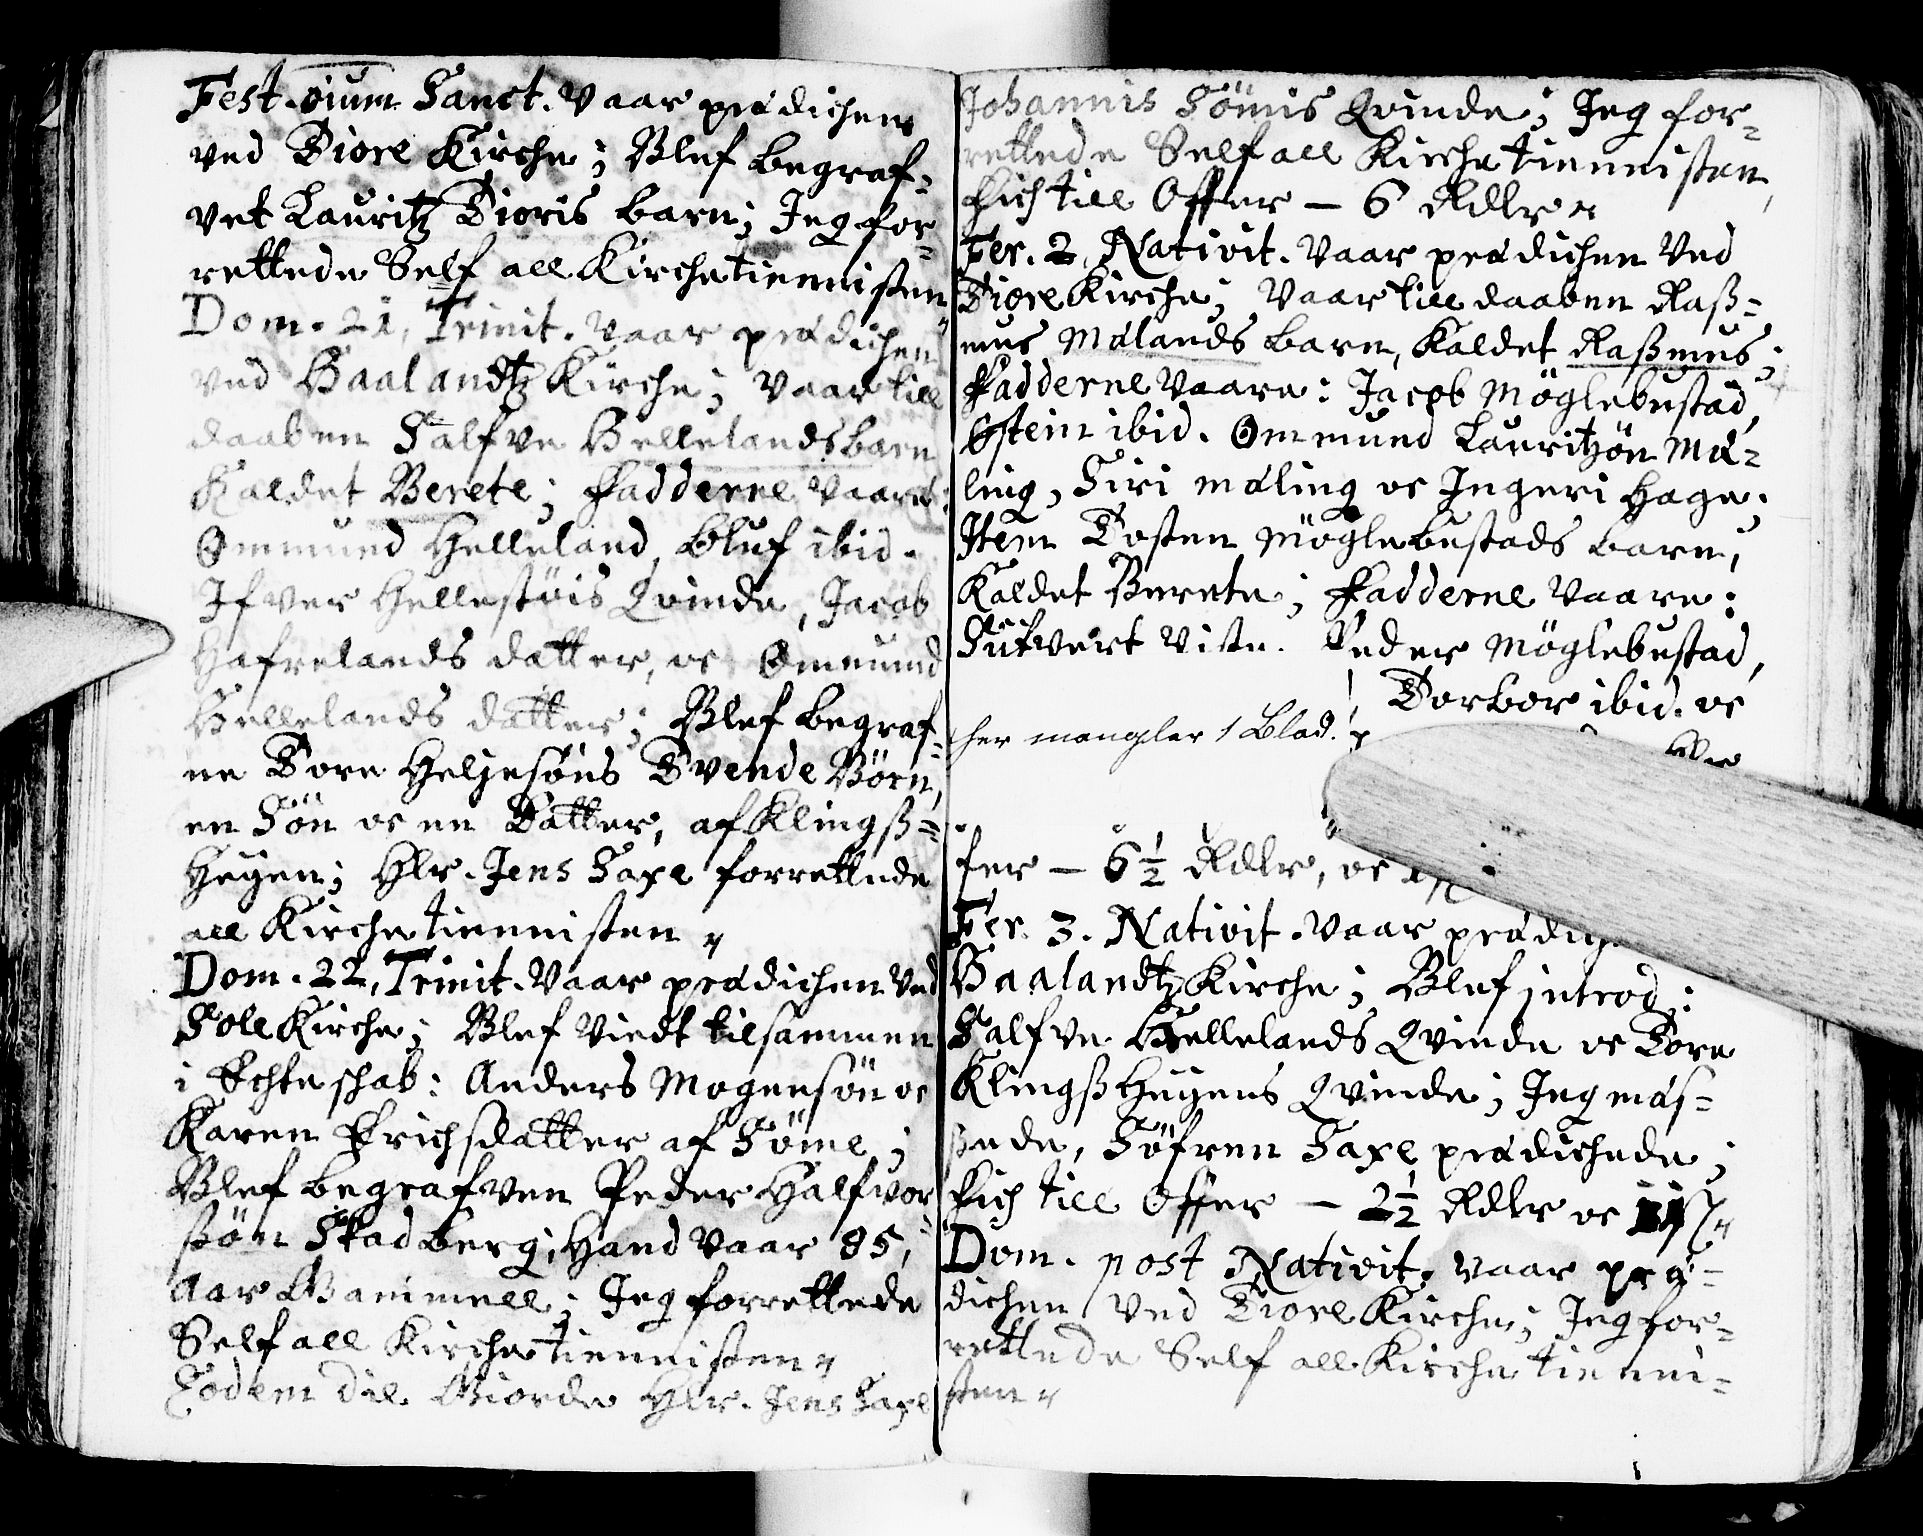 Fest. oium Sanct. Vaar prædichen
ved Tiore Kirche; Blef begraf-
vet Lauritz Tioris barn; Jeg for-
rettede Self all Kirchetiennisten
Dom. 21, Trinit. Vaar prædichen
ved Haalandtz Kirche; Vaar till
daaben Salfve Hellelands barn
Kaldet Berete; Fadderne Vaare:
Ommund Helleland, Oluf ibid.
Ifver Hellestöis Qvinde, Jacob
Hafrelands datter, oc Ommund
Hellelands datter; Blef begraf-
ne Tore Heljesöns Tvende Börn,
en Sön oc en Datter, af Klingß-
Heyen; Hlr. Jens Saxe forrettede
all Kirchetiennisten
Dom. 22, Trinit. Vaar prædichen Ved
Sole Kirche; Blef Viedt tilsammen
i Echteschab: Anders Mogensön oc
Karen Erichsdatter af Söme;
Blef begrafven Peder Halfvor
ßön Skadberg; Hand Vaar 85,
Aar Gammell; Jeg forrettede
Self all Kirchetiennisten
Eodem die Giorde Hlr. Jens Saxe
Johannis Sömis Qvinde; Jeg for-
rettede Self all Kirchetiennisten,
Fich till Offer — 6 Rdlr
Fer. 2, Nativit. Vaar prædichen Ved
Tiore Kirche; Vaar till daaben Raß-
mus Mælands barn, Kaldet Raßmus;
Fadderne Vaare: Jacob Möglebustad,
Östein ibid. Ommund Lauritzön Mæ-
ling, Siri Mæling oc Ingeri Hage;
Item Tosten Möglebustads barn,
Kaldet Berete; Fadderne Vaare:
Sifvert Viste. Peder Möglebustad,
Torbor ibid. oc
her mangler 1 Blad!
fer — 6½ Rdlr, oc
Fer. 3. Nativit. Vaar prædich
Haalandtz Kirche; Blef introd:
Salfve Hellelands Qvinde oc Tore
Klingß Heyens Qvinde; Jeg mes-
ßede, Söfren Saxe prædichede;
Fich till Offer — 2½ Rdlr oc
Dom. post Nativit. Vaar præ-
dichen Ved Tiore Kirche; Jeg for-
rettede Self all Kirchetienni-
sten